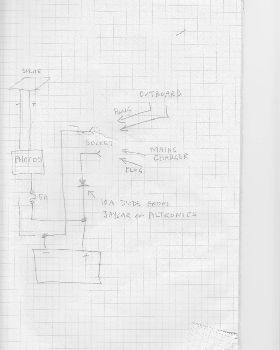 OUTBOARD
PLUG
SOLAR
SOCKET
MAINS
CHARGER
PLUG
5A
10A DIODE FROM
JAYCAR OR ALTRONICS
- +